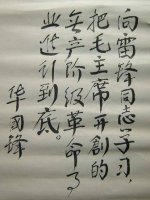 向雷锋同志学习，
把毛主席开创的
无产阶级革命事
业进行到底。
华国锋